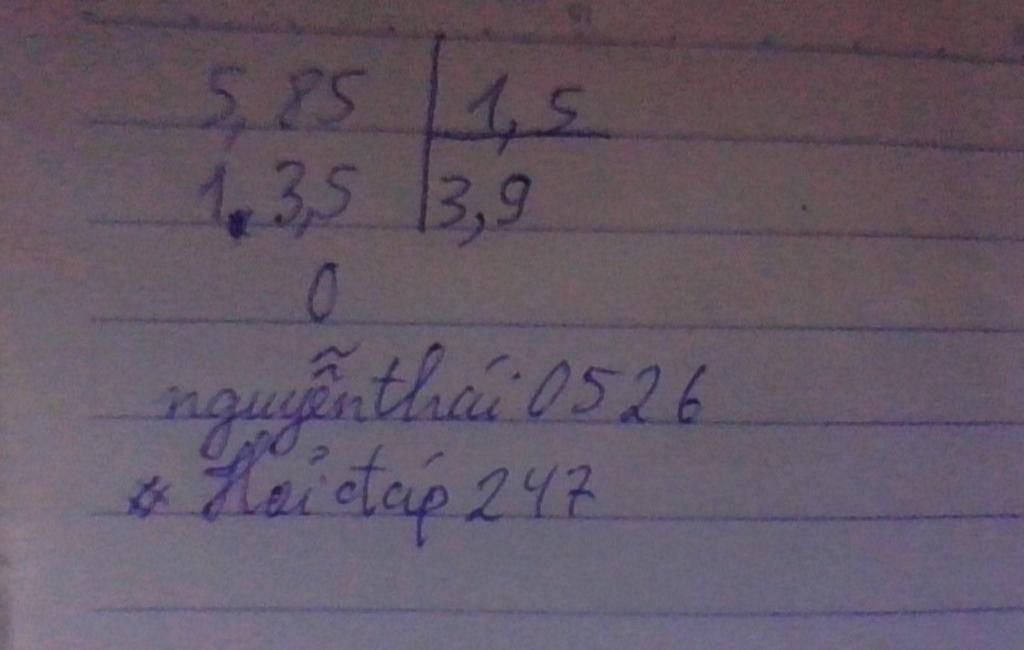 5,85 | 1,5
1,3,5 | 3,9
0
nguyễnthái0526
* Hỏi đáp 247